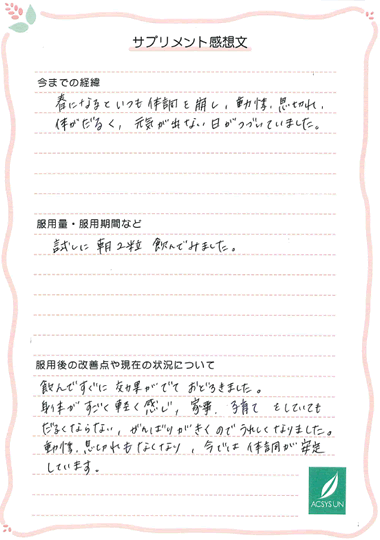 サプリメント感想文
今までの経緯
春になるといつも体調を崩し、動悸、息切れ、
体がだるく、元気が出ない日がつづいていました。
服用量・服用期間など
試しに朝2粒飲んでみました。
服用後の改善点や現在の状況について
飲んですぐに効果がでておどろきました。
身体がすごく軽く感じ、家事、子育てをしていても
だるくならない、がんばりがきくのでうれしくなりました。
動悸、息切れもなくなり、今では体調が安定
しています。
ACSYS UN